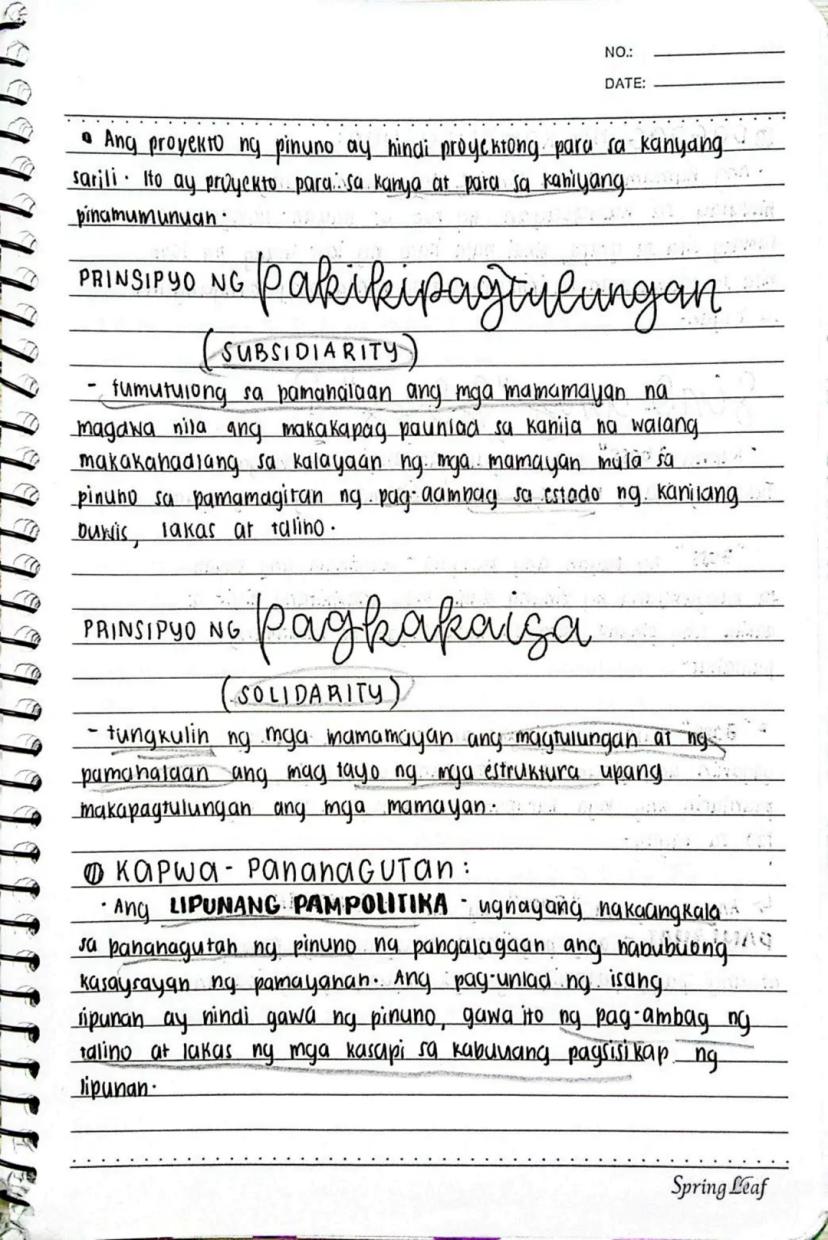 NO.:
DATE:
• Ang proyekto ng pinuno ay hindi proyektong para sa kanyang
sarili. Ito ay proyekto para sa kanya at para sa kaniyang
pinamumunuan.
PRINSIPYO NG Pakikipagtulungan
(SUBSIDIARITY)
- tumutulong sa pamahalaan ang mga mamamayan na
magawa nila ang makakapag paunlad sa kanila na walang
makakahadlang sa kalayaan ng mga mamayan mula sa
pinuno sa pamamagitan ng pag-aambag sa estado ng kanilang
buwis, lakas at talino.
PRINSIPYO NG Pagkakaisa
(SOLIDARITY)
- tungkulin ng mga mamamayan ang magtulungan at ng
pamahalaan ang mag tayo ng mga estruktura upang
makapagtulungan ang mga mamayan.
① KAPWA-PANANAGUTAN:
• Ang LIPUNANG PAMPOLITIKA - ugnayang nakaangkala
sa pananagutan ng pinuno na pangalagaan ang nabubuong
kasaysayan ng pamayanan. Ang pag-unlad ng isang
lipunan ay hindi gawa ng pinuno, gawa ito ng pag-ambag ng
talino at lakas ng mga kasapi sa kabuuang pagsisikap ng
lipunan.
Spring Leaf